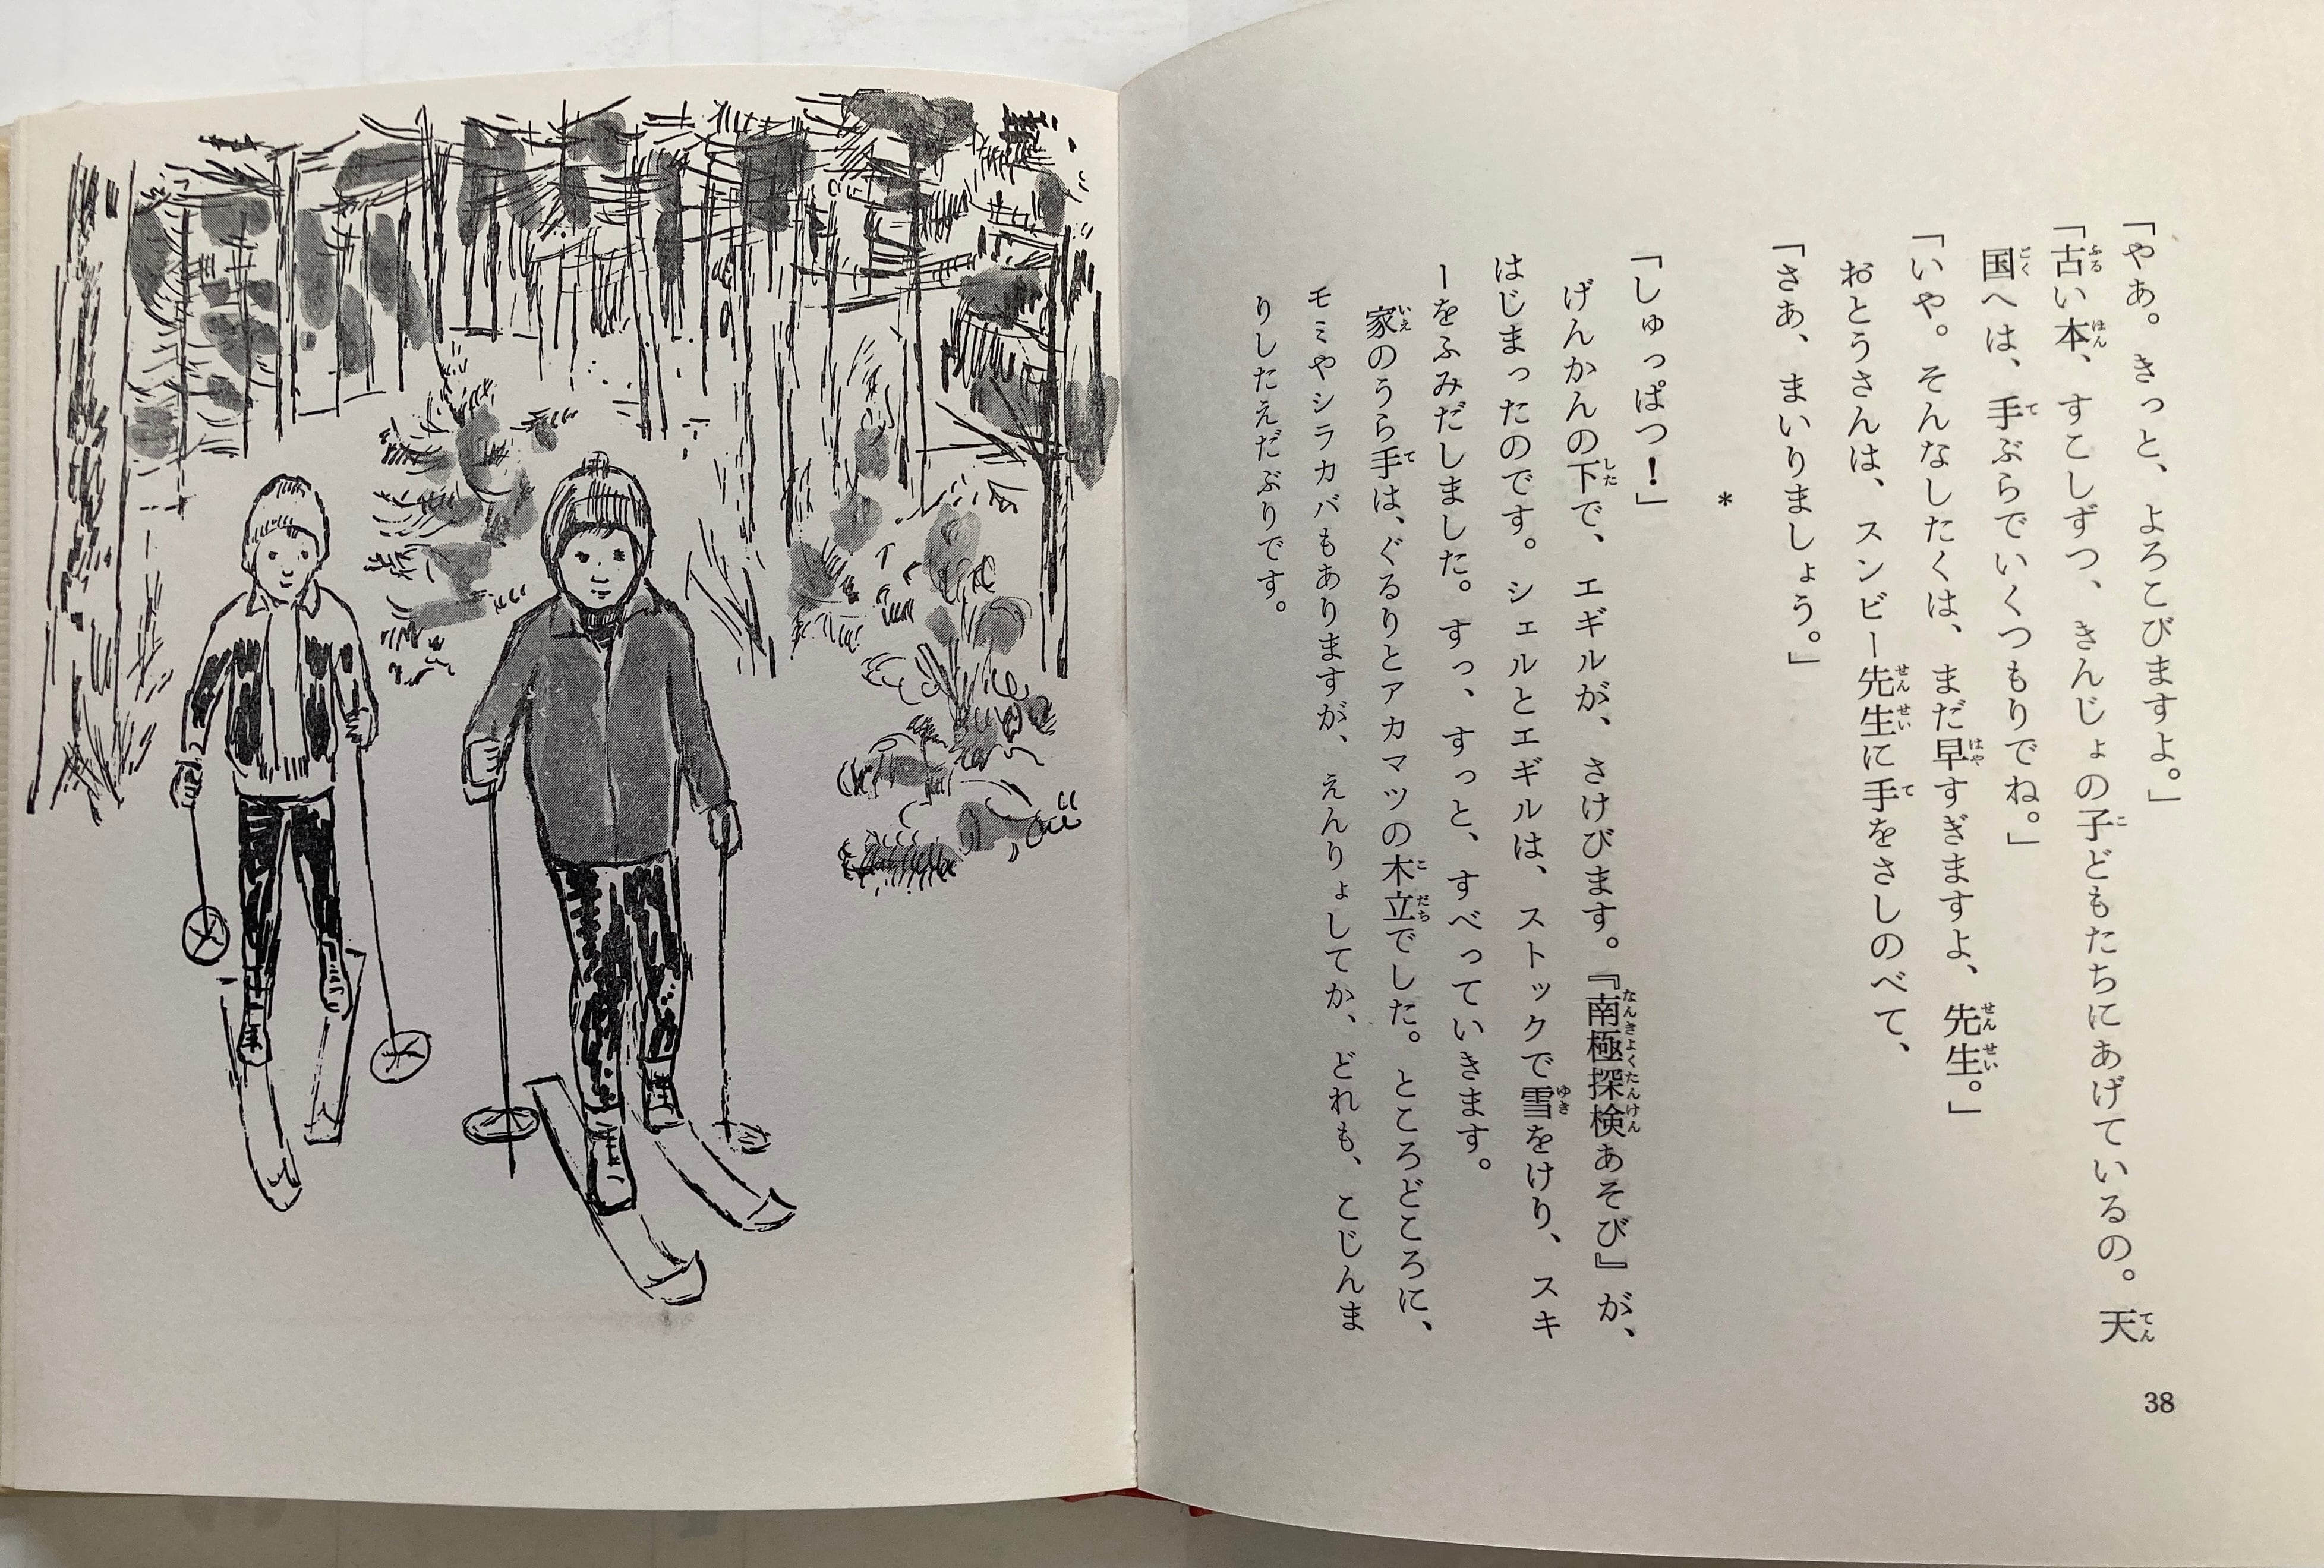 「やあ。きっと、よろこびますよ。」
「古い本、すこしずつ、きんじょの子どもたちにあげているの。天
国へは、手ぶらでいくつもりでね。」
「いや。そんなしたくは、まだ早すぎますよ、先生。」
おとうさんは、スンビー先生に手をさしのべて、
「さあ、まいりましょう。」
＊
「しゅっぱつ！」
げんかんの下で、エギルが、さけびます。『南極探検あそび』が、
はじまったのです。シェルとエギルは、ストックで雪をけり、スキ
ーをふみだしました。すっ、すっと、すべっていきます。
家のうら手は、ぐるりとアカマツの木立でした。ところどころに、
モミやシラカバもありますが、えんりょしてか、どれも、こじんま
りしたえだぶりです。
38